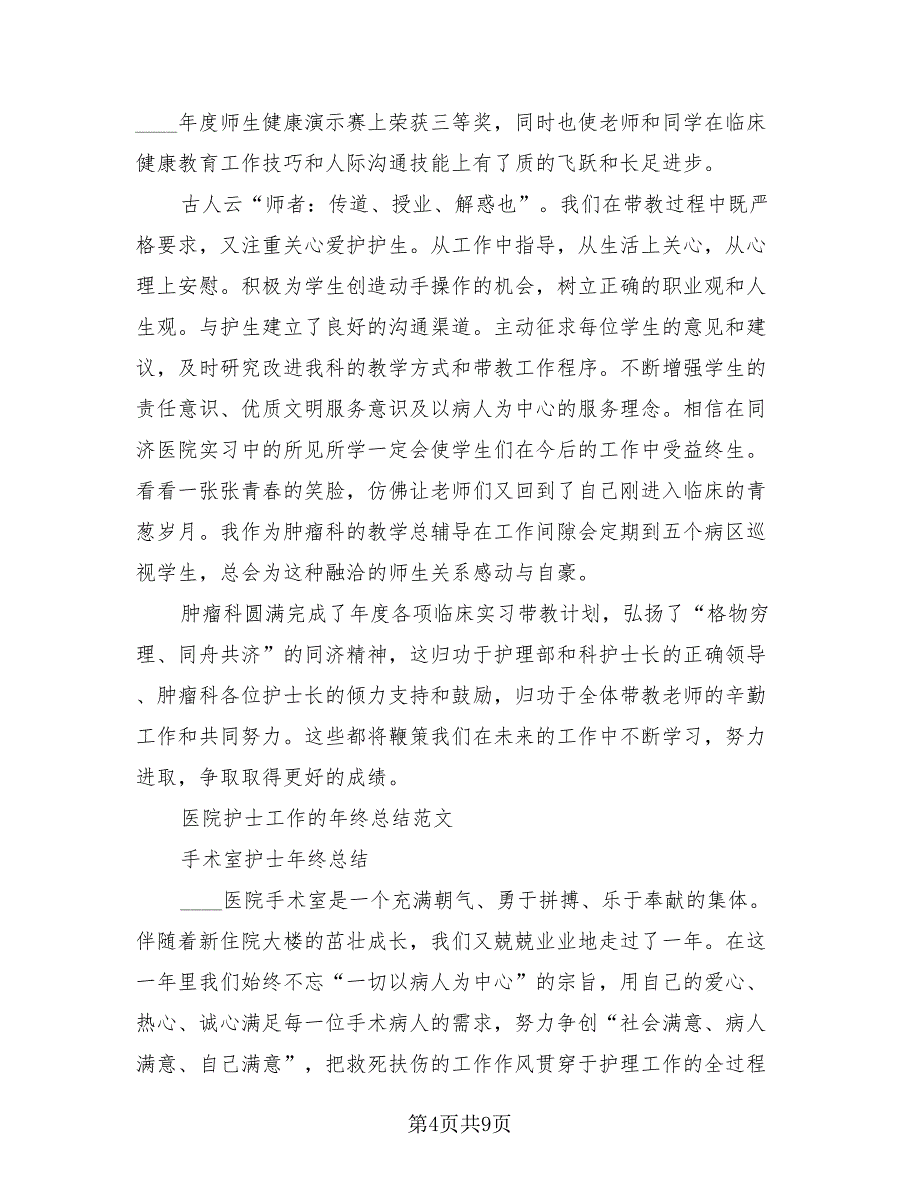 ____年度师生健康演示赛上荣获三等奖，同时也使老师和同学在临床
健康教育工作技巧和人际沟通技能上有了质的飞跃和长足进步。
古人云“师者：传道、授业、解惑也”。我们在带教过程中既严
格要求，又注重关心爱护护生。从工作中指导，从生活上关心，从心
理上安慰。积极为学生创造动手操作的机会，树立正确的职业观和人
生观。与护生建立了良好的沟通渠道。主动征求每位学生的意见和建
议，及时研究改进我科的教学方式和带教工作程序。不断增强学生的
责任意识、优质文明服务意识及以病人为中心的服务理念。相信在同
济医院实习中的所见所学一定会使学生们在今后的工作中受益终生。
看看一张张青春的笑脸，仿佛让老师们又回到了自己刚进入临床的青
葱岁月。我作为肿瘤科的教学总辅导在工作间隙会定期到五个病区巡
视学生，总会为这种融洽的师生关系感动与自豪。
肿瘤科圆满完成了年度各项临床实习带教计划，弘扬了“格物穷
理、同舟共济”的同济精神，这归功于护理部和科护士长的正确领导
、肿瘤科各位护士长的倾力支持和鼓励，归功于全体带教老师的辛勤
工作和共同努力。这些都将鞭策我们在未来的工作中不断学习，努力
进取，争取取得更好的成绩。
医院护士工作的年终总结范文
手术室护士年终总结
____医院手术室是一个充满朝气、勇于拼搏、乐于奉献的集体。
伴随着新住院大楼的茁壮成长，我们又兢兢业业地走过了一年。在这
一年里我们始终不忘“一切以病人为中心”的宗旨，用自己的爱心、
热心、诚心满足每一位手术病人的需求，努力争创“社会满意、病人
满意、自己满意”，把救死扶伤的工作作风贯穿于护理工作的全过程
第4页共9页